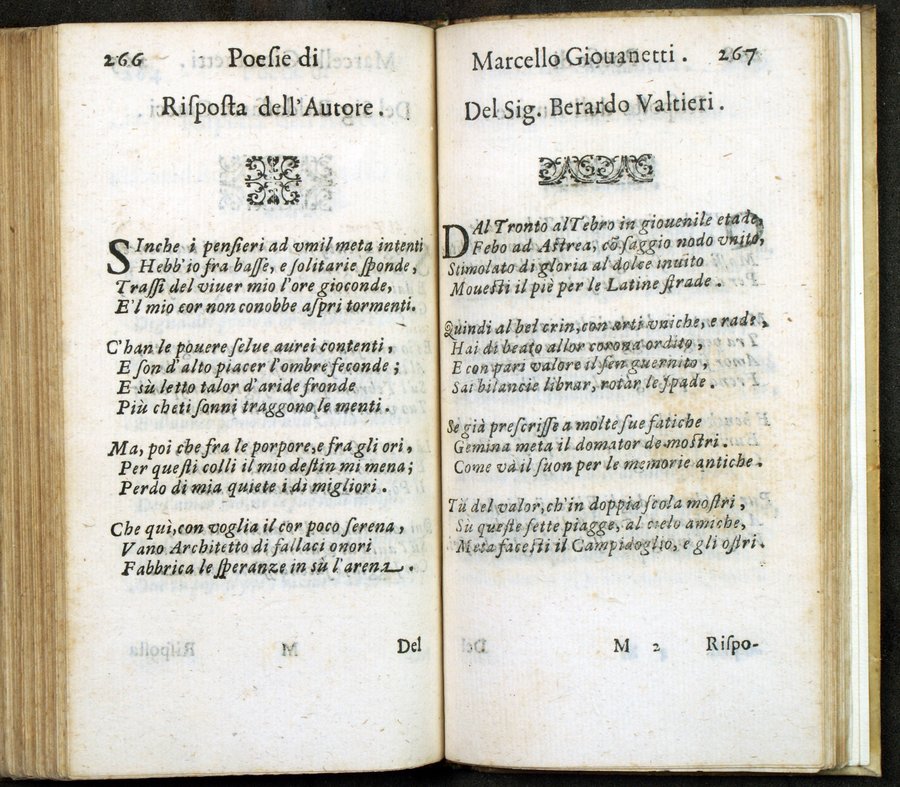 266 Poesie di
Risposta dell'Autore.
SInche i pensieri ad vmil meta intenti
Hebb'io fra basse, e solitarie sponde,
Trassi del viuer mio l'ore gioconde,
E'l mio cor non conobbe aspri tormenti.
C'han le pouere selue aurei contenti,
E son d'alto piacer l'ombre feconde;
E sù letto talor d'aride fronde
Più cheti sonni traggono le menti.
Ma, poi che fra le porpore, e fra gli ori,
Per questi colli il mio destin mi mena;
Perdo di mia quiete i dì migliori.
Che quì, con voglia il cor poco serena,
Vano Architetto di fallaci onori
Fabbrica le speranze in sù l'arena.
Del
Marcello Giouanetti. 267
Del Sig. Berardo Valtieri.
DAl Tronto al Tebro in giouenile etade,
Febo ad Astrea, cō saggio nodo vnito,
Stimolato di gloria al dolce inuito
Mouesti il piè per le Latine strade.
Quindi al bel crin, con arti vniche, e rade,
Hai di beato allor corona ordito;
E con pari valore il sen guernito,
Sai bilancie librar, rotar le spade.
Se già prescrisse a molte sue fatiche
Gemina meta il domator de mostri.
Come và il suon per le memorie antiche.
Tù del valor, ch'in doppia scola mostri,
Sù queste sette piagge, al cielo amiche,
Meta facesti il Campidoglio, e gli ostri.
M 2 Rispo-